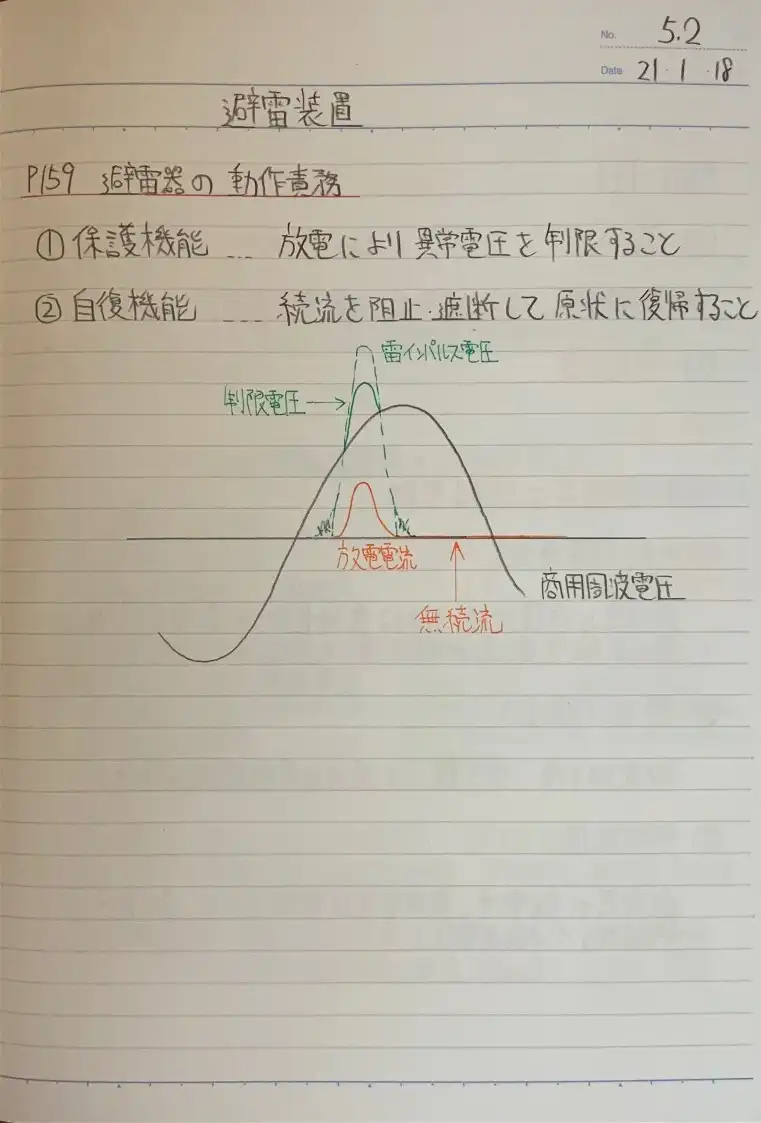 No. 5.2
Date 21・1・18
避雷装置
P159 避雷器の動作責務
① 保護機能 … 放電により異常電圧を制限すること
② 自復機能 … 続流を阻止・遮断して原状に復帰すること
雷インパルス電圧
制限電圧
放電電流
商用周波電圧
無続流